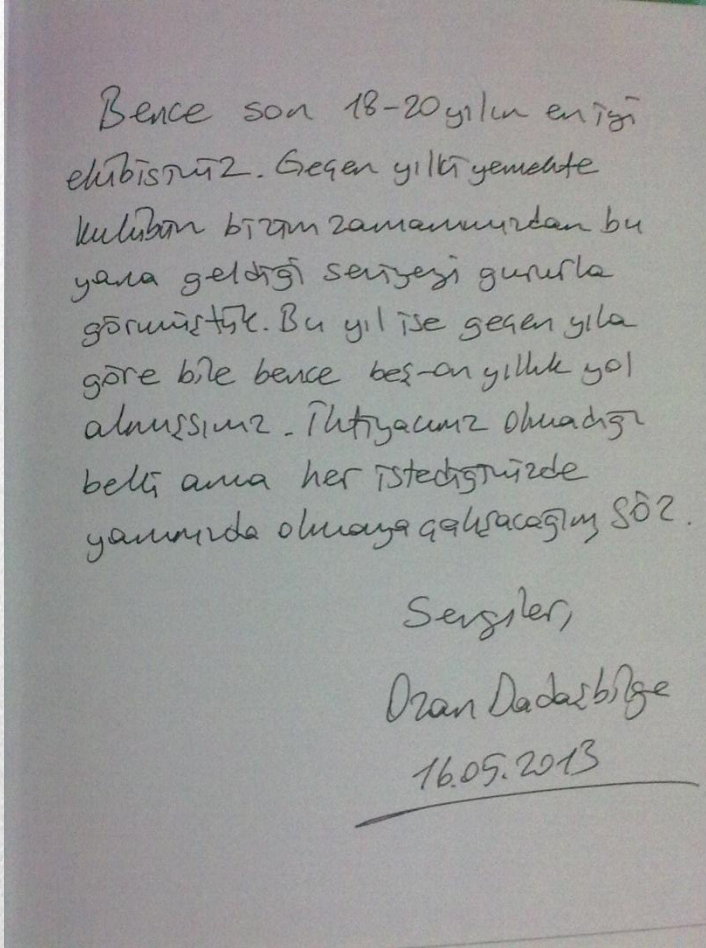 Bence son 18-20 yılın en iyi
ekibisiniz. Geçen yılki yemekte
kulübün bizim zamanımızdan bu
yana geldiği seviyeyi gururla
görmüştük. Bu yıl ise geçen yıla
göre bile bence beş-on yıllık yol
almışsınız. İhtiyacınız olmadığı
belli ama her istediğinizde
yanınızda olmaya çalışacağım SÖZ.
Sevgiler,
Ozan Dadaşbilge
16.05.2013